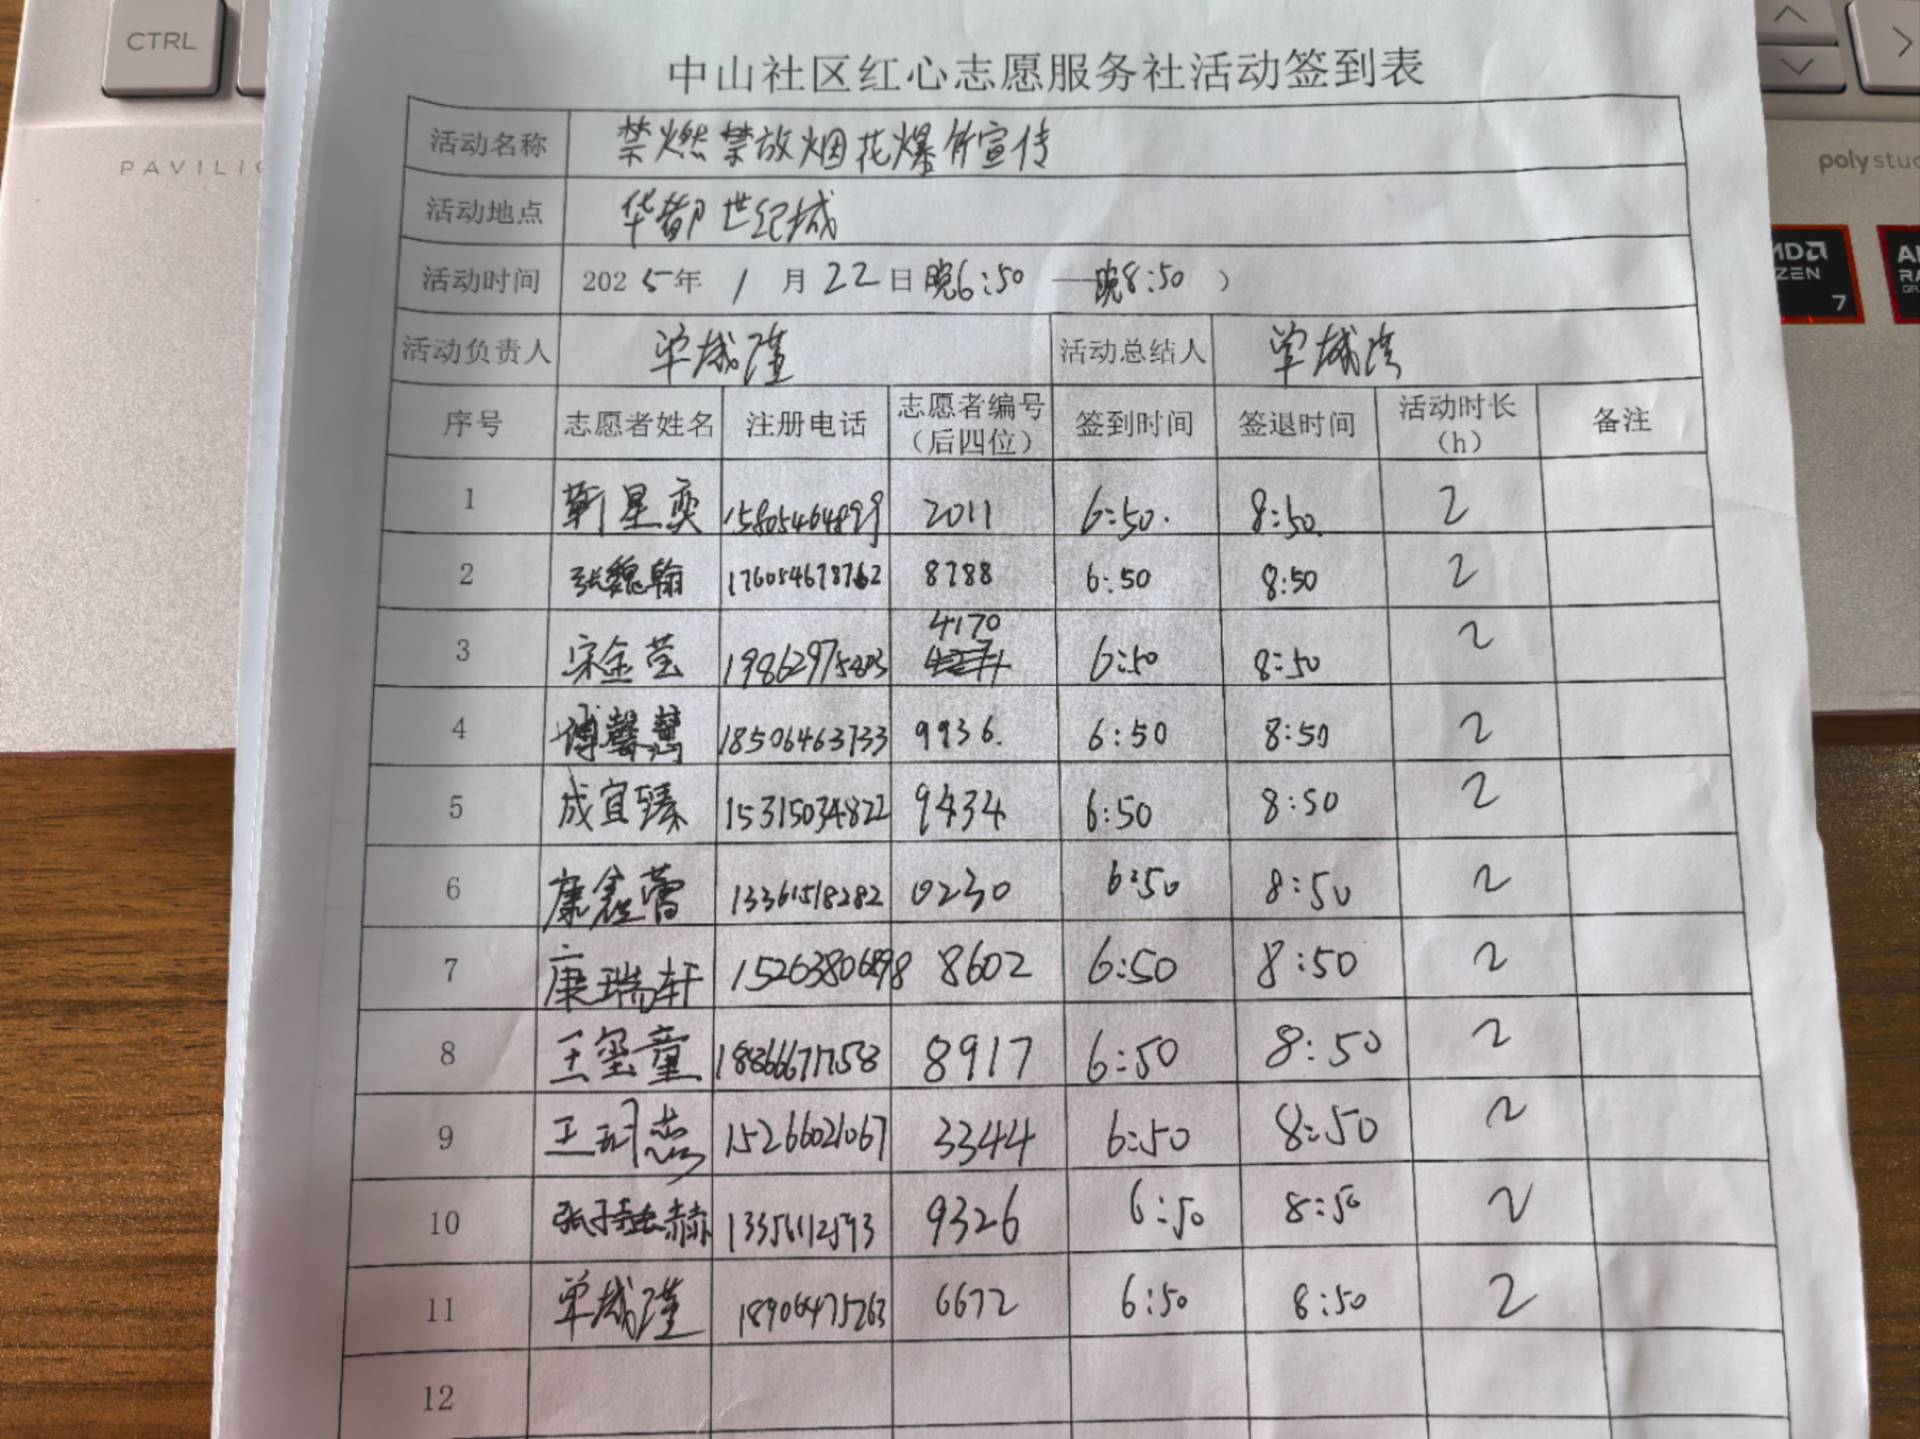 CTRL
PAVILIO
poly stud
7
中山社区红心志愿服务社活动签到表
活动名称 禁燃禁放烟花爆竹宣传
活动地点 华都世纪城
活动时间 2025年 1 月 22 日 晚6:50 —晚8:50 )
活动负责人 单城瑾 活动总结人 单城瑾
序号 志愿者姓名 注册电话 志愿者编号（后四位） 签到时间 签退时间 活动时长（h） 备注
1 靳星奕 15805464899 2011 6:50. 8:50. 2
2 张魏翰 176054678762 8788 6:50 8:50 2
3 宋金莹 19862975403 4170 6:50 8:50 2
4 傅馨慧 18506463733 9936. 6:50 8:50 2
5 成宜臻 15315034822 9434 6:50 8:50 2
6 康鑫蕾 13361518282 0230 6:50 8:50 2
7 康瑞轩 8602 6:50 8:50 2
8 王玺童 18866677758 8917 6:50 8:50 2
9 王 15266021067 3344 6:50 8:50 2
10 张 赫 9326 6:50 8:50 2
11 单城瑾 18906475263 6672 6:50 8:50 2
12